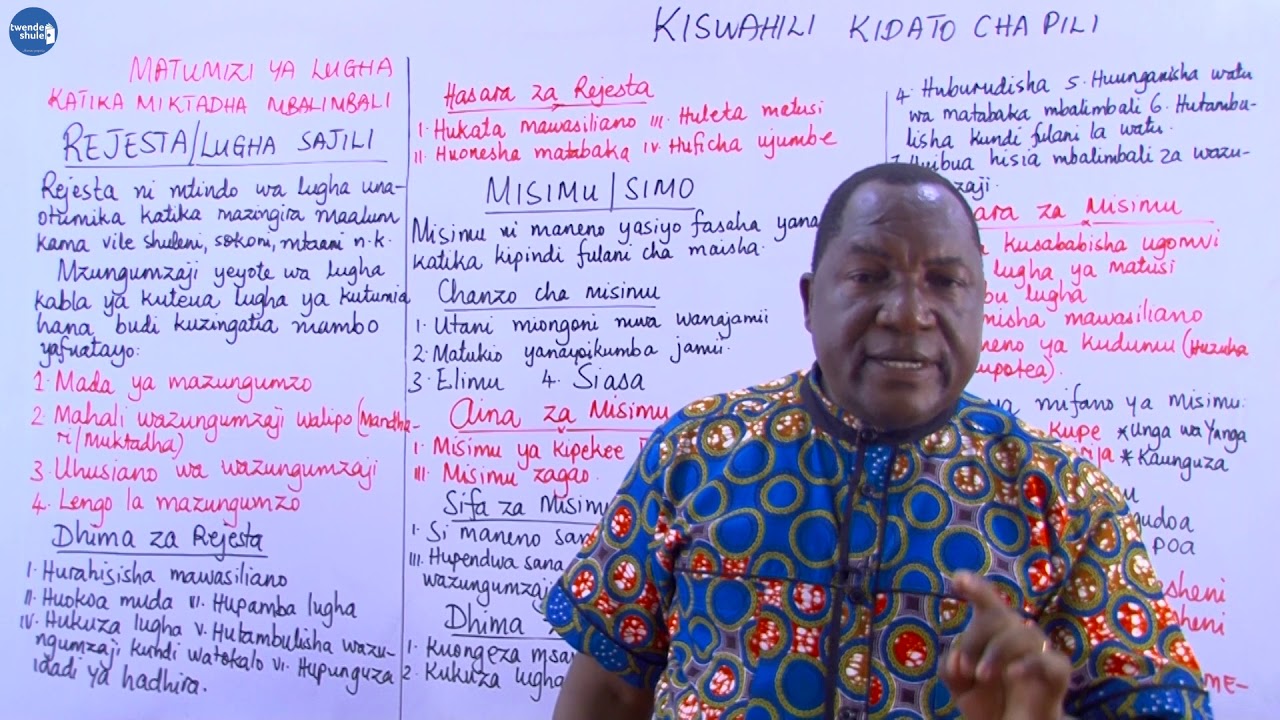 twende
shule
KISWAHILI KIDATO CHA PILI
MATUMIZI YA LUGHA
KATIKA MIKTADHA MBALIMBALI
REJESTA/LUGHA SAJILI
Rejesta ni mtindo wa lugha una-
otumika katika mazingira maalum
kama vile shuleni, sokoni, mtaani n.k.
Mzungumzaji yeyote wa lugha
kabla ya kuteua lugha ya kutumia
hana budi kuzingatia mambo
yafuatayo:
1. Mada ya mazungumzo
2 Mahali wazungumzaji walipo (Mandha-
ri/Muktadha)
3 Uhusiano wa wazungumzaji
4. Lengo la mazungumzo
Dhima za Rejesta
I. Hurahisisha mawasiliano
II. Huokoa muda III. Hupamba lugha
IV. Hukuza lugha V. Hutambulisha wazu-
ngumzaji kundi watokalo VI. Hupunguza
idadi ya hadhira.
Hasara za Rejesta
I. Hukata mawasiliano III. Huleta matusi
II. Huonesha matabaka IV. Huficha ujumbe
MISIMU/SIMO
Misimu ni maneno yasiyo fasaha yana
katika kipindi fulani cha maisha.
Chanzo cha misimu
1. Utani miongoni mwa wanajamii
2. Matukio yanayoikumba jamii.
3. Elimu 4. Siasa
Aina za Misimu
I. Misimu ya kipekee
III. Misimu zagao.
Sifa za Misimu
I. Si maneno san
III. Hupendwa sana
wazungumzaji
Dhima
1. Kuongeza msam
2. Kukuza lugha
4. Huburudisha 5. Huunganisha watu
wa matabaka mbalimbali 6. Hutambu-
lisha kundi fulani la watu.
7. Huibua hisia mbalimbali za wazu-
zaji.
ara za Misimu
kusababisha ugomvi
lugha ya matusi
bu lugha
misha mawasiliano
neno ya kudumu (huzuka
kupotea).
ya mifano ya misimu:
Kupe *Unga wa Yanga
rija *Kaunguza
u
gudoa
POA
sheni
sheni
ME-